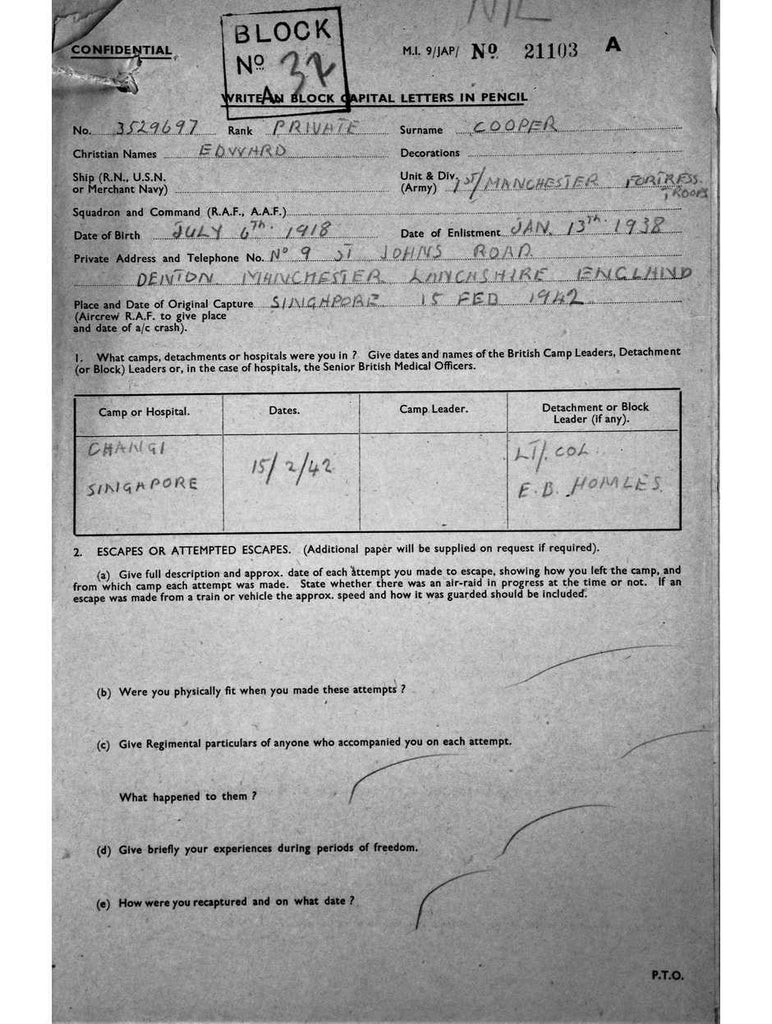 NIL
CONFIDENTIAL
BLOCK
Nº 37
A
M.I. 9/JAP/ Nº 21103 A
WRITE IN BLOCK CAPITAL LETTERS IN PENCIL
No. 3529697 Rank PRIVATE Surname COOPER
Christian Names EDWARD Decorations
Ship (R.N., U.S.N. or Merchant Navy)
Unit & Div. (Army) 1ST/MANCHESTER FORTRESS TROOPS
Squadron and Command (R.A.F., A.A.F.)
Date of Birth JULY 6TH. 1918 Date of Enlistment JAN. 13TH. 1938
Private Address and Telephone No. Nº 9 ST JOHNS ROAD
DENTON MANCHESTER LANCASHIRE ENGLAND
Place and Date of Original Capture SINGAPORE 15 FEB 1942
(Aircrew R.A.F. to give place
and date of a/c crash).
1. What camps, detachments or hospitals were you in ? Give dates and names of the British Camp Leaders, Detachment
(or Block) Leaders or, in the case of hospitals, the Senior British Medical Officers.
Camp or Hospital. Dates. Camp Leader. Detachment or Block Leader (if any).
CHANGI
SINGAPORE
15/2/42
LT/. COL.
E.B. HOMLES
2. ESCAPES OR ATTEMPTED ESCAPES. (Additional paper will be supplied on request if required).
(a) Give full description and approx. date of each attempt you made to escape, showing how you left the camp, and
from which camp each attempt was made. State whether there was an air-raid in progress at the time or not. If an
escape was made from a train or vehicle the approx. speed and how it was guarded should be included.
(b) Were you physically fit when you made these attempts ?
(c) Give Regimental particulars of anyone who accompanied you on each attempt.
What happened to them ?
(d) Give briefly your experiences during periods of freedom.
(e) How were you recaptured and on what date ?
P.T.O.